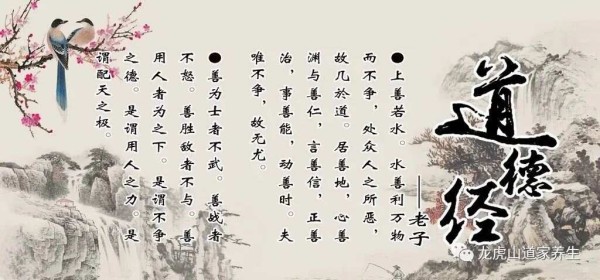 道德经
——老子
●上善若水。水善利万物
而不争,处众人之所恶,
故几於道。居善地,心善
渊与善仁,言善信,正善
治,事善能,动善时。夫
唯不争,故无尤。
●善为士者不武。善战者
不怒。善胜敌者不与。善
用人者为之下。是谓不争
之德。是谓用人之力。是
谓配天之极。
龙虎山道家养生